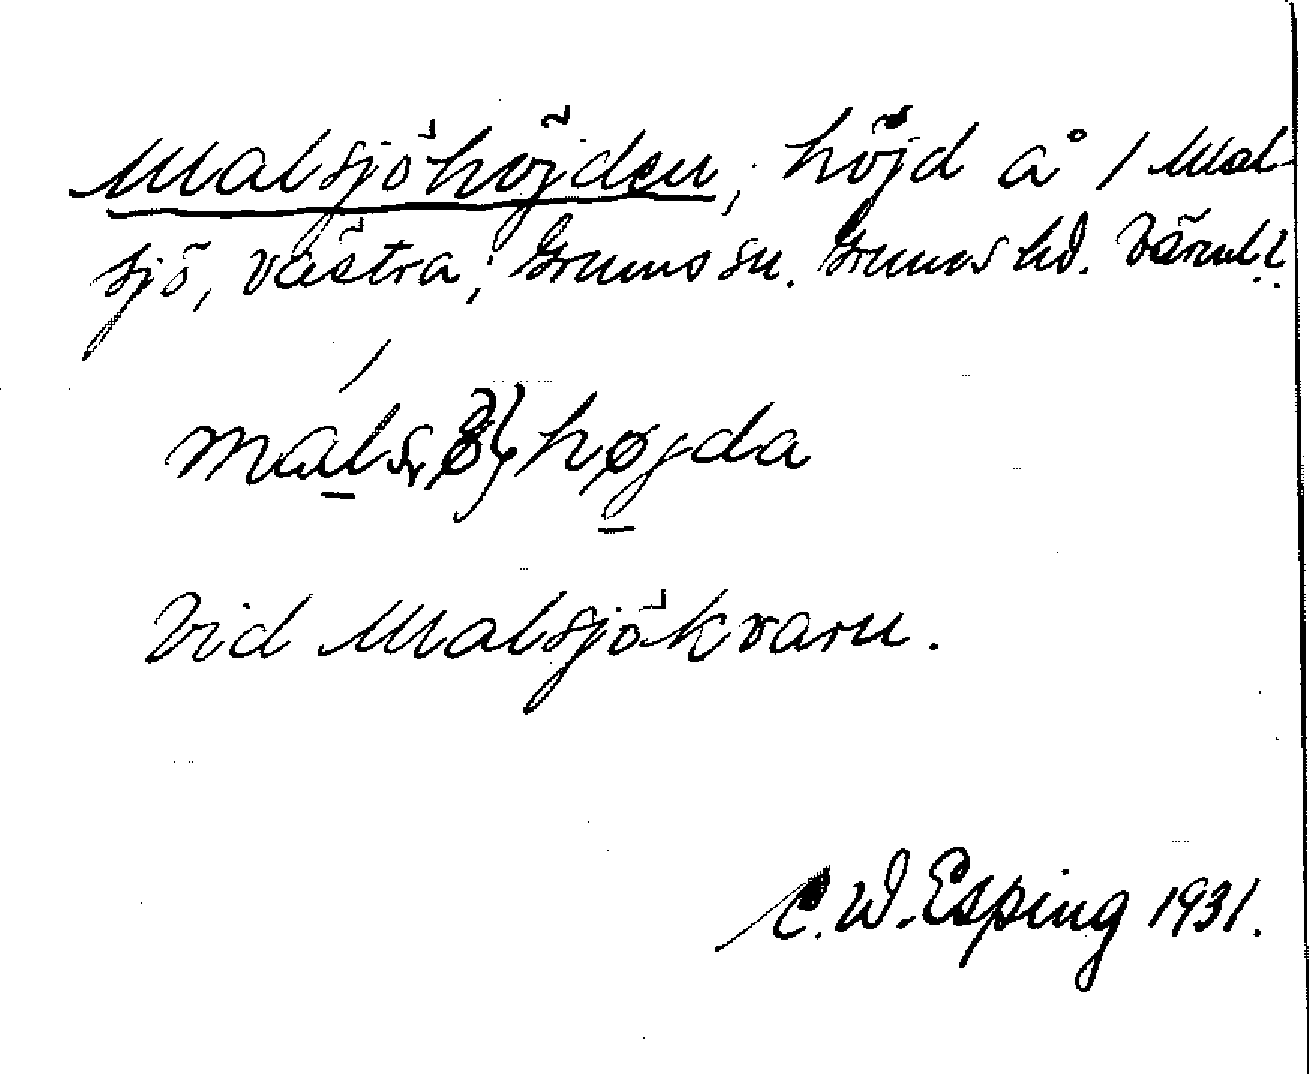 Malsjöhöjden, höjd å 1 Mal-
sjö, västra, Grums sn. Grums hd. Värml.
Vid Malsjökvarn.
C. W. Esping 1931.